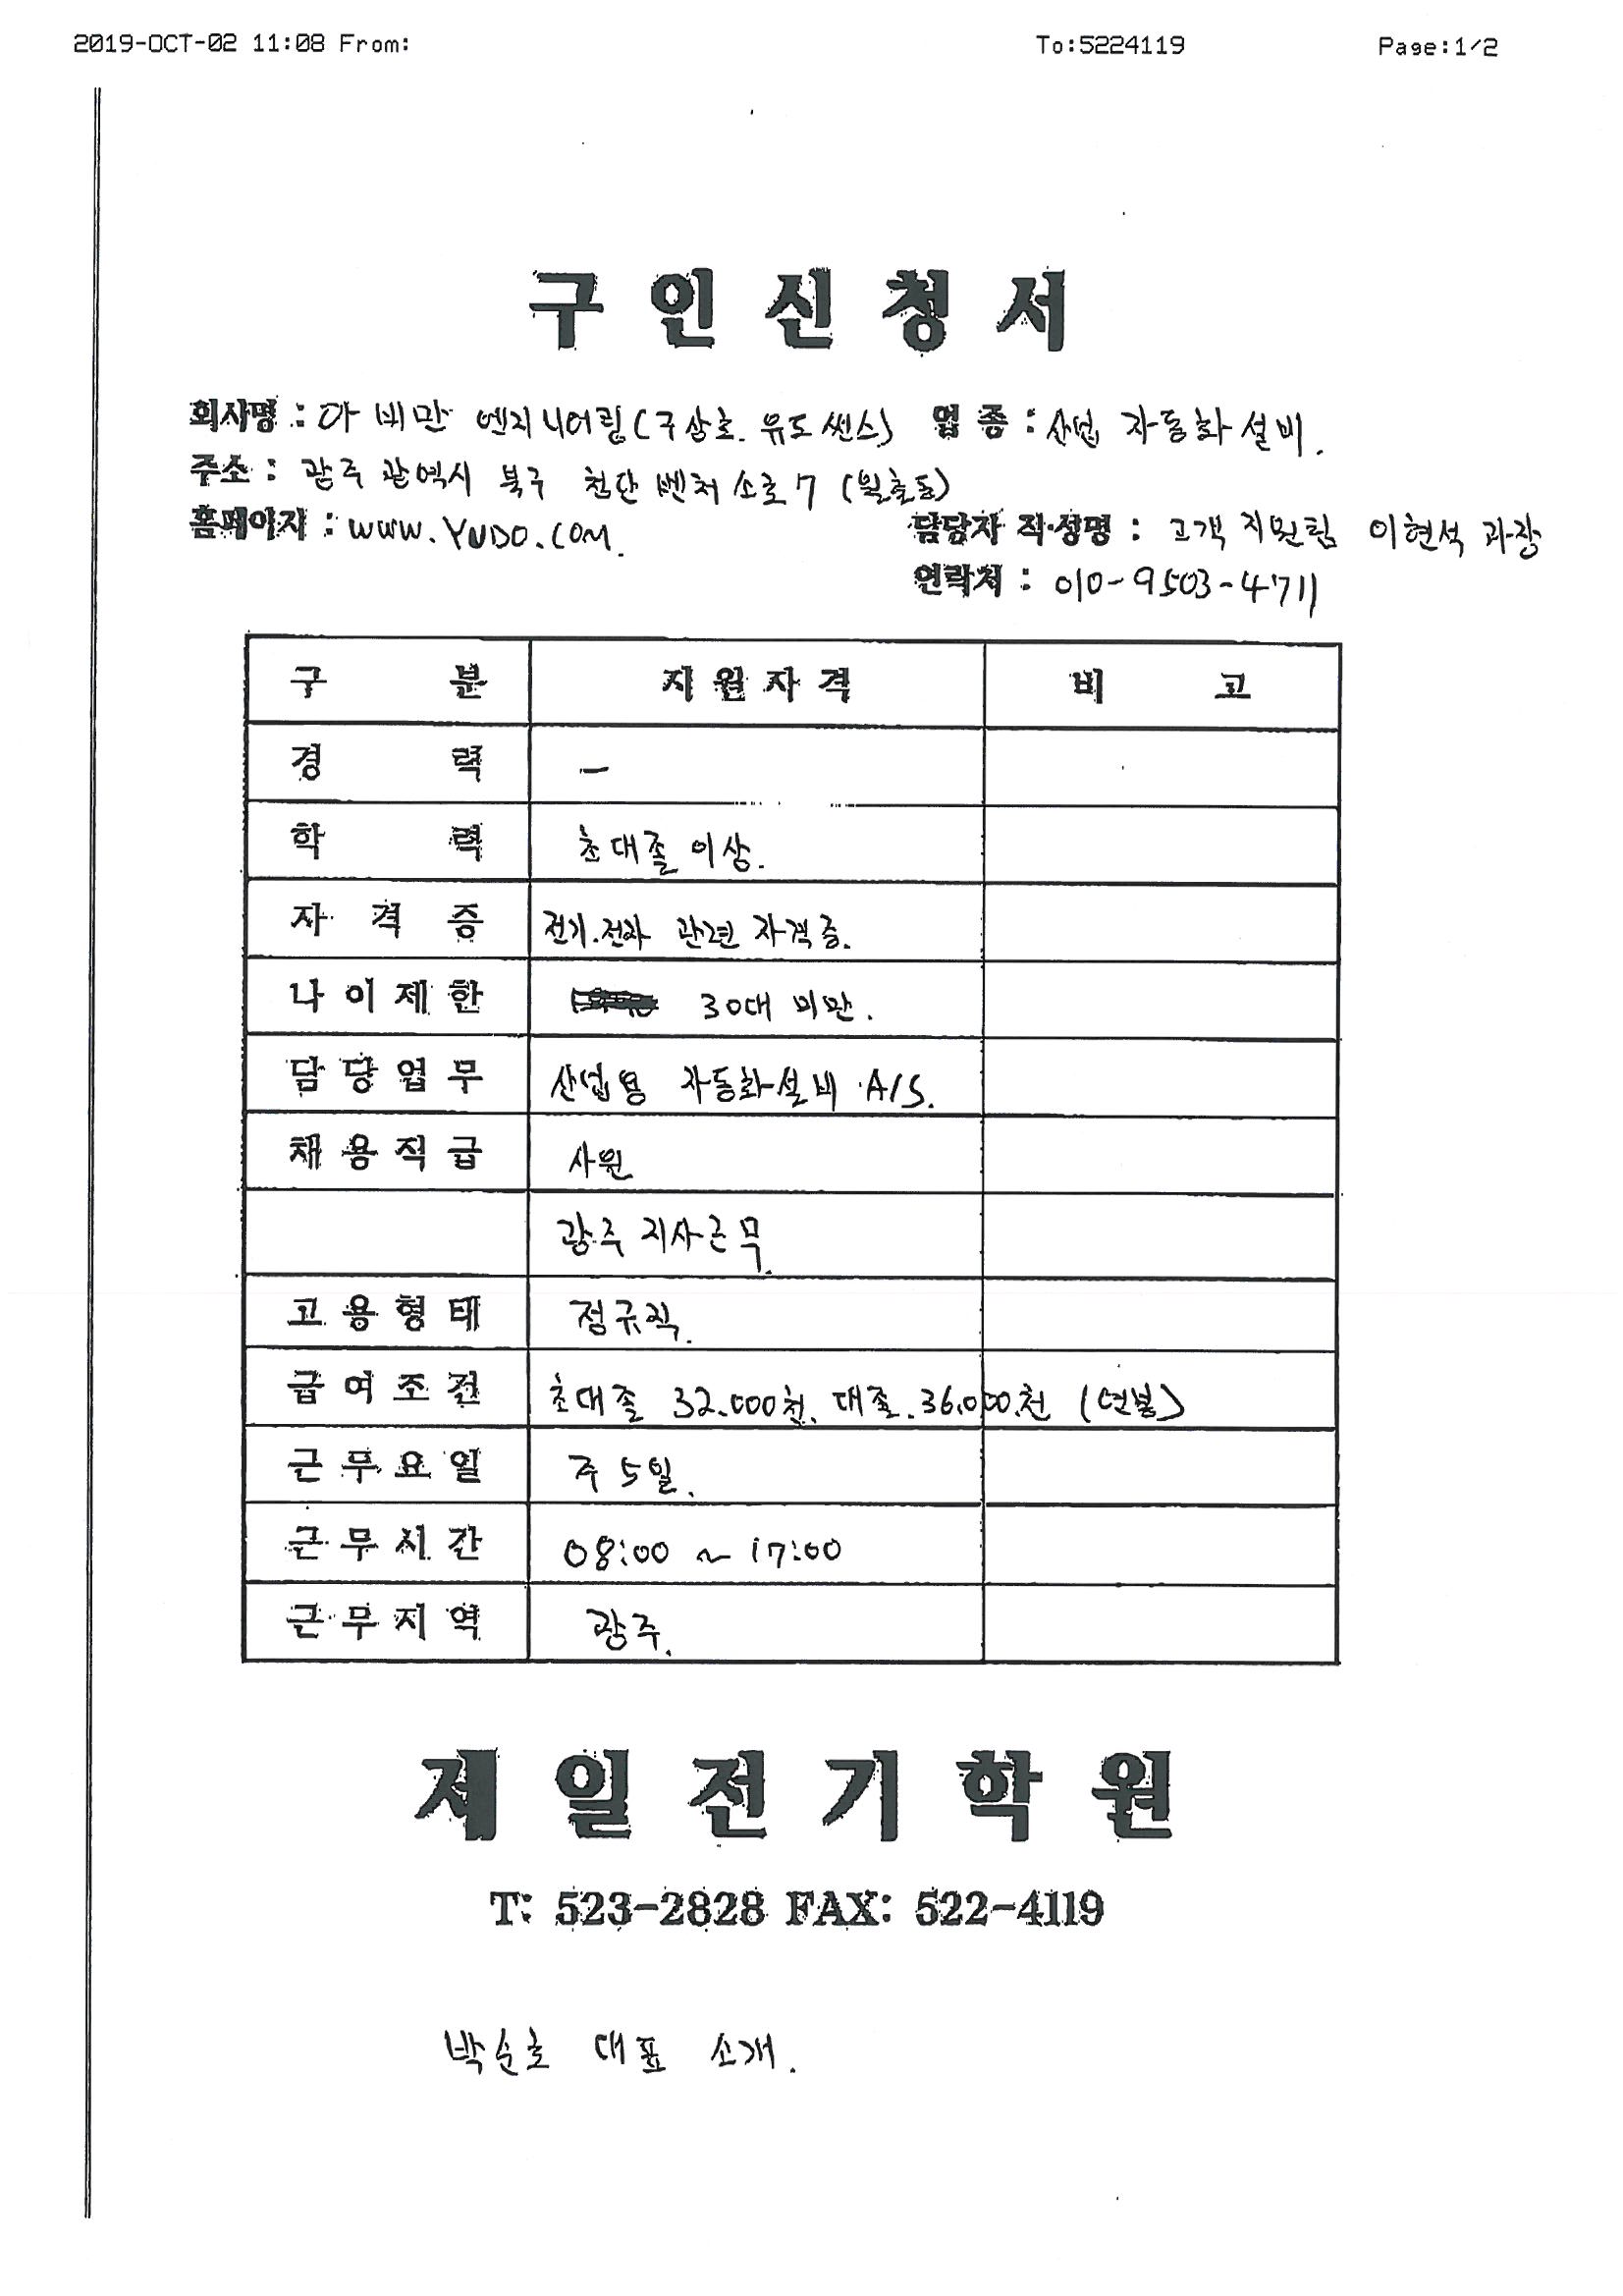 2019-OCT-02 11:08 From: To:5224119 Page:1/2
구인신청서
회사명 : 아비만 엔지니어링(구상호. 유도썬스) 업종 : 산업 자동화설비.
주소 : 광주광역시 북구 첨단벤처소로7 (월출동)
홈페이지 : www.YUDO.COM. 담당자 작성명 : 고객지원팀 이현석 과장
연락처 : 010-9503-4711
구 분 지원자격 비 고
경 력 -
학 력 초대졸 이상.
자 격 증 전기.전자 관련 자격증.
나이제한 30대 미만.
담당업무 산업용 자동화설비 A/S.
채용직급 사원
광주 지사근무.
고용형태 정규직.
급여조건 초대졸 32.000천. 대졸.36.000.천 (연봉)
근무요일 주5일.
근무시간 08:00 ~ 17:00
근무지역 광주.
제일전기학원
T: 523-2828 FAX: 522-4119
박순호 대표 소개.